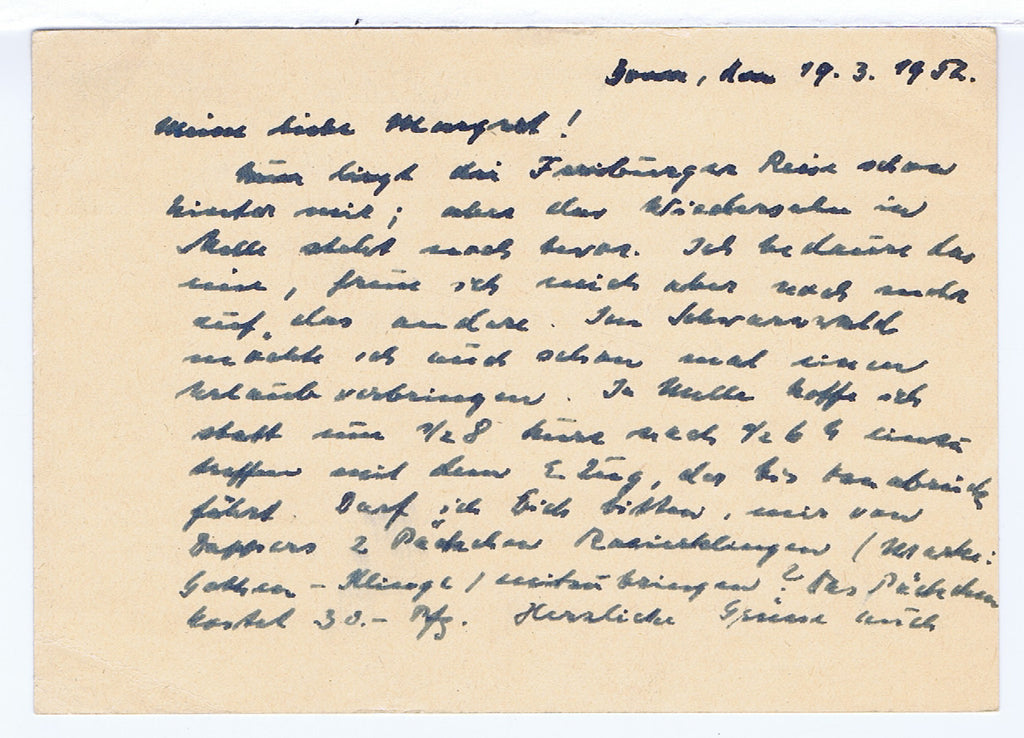 Bonn, den 19. 3. 1952.
Meine liebe Margret!
Nun liegt die Freiburger Reise schon
hinter mir; aber das Wiedersehn in
Melle steht noch bevor. Ich bedaure das
eine, freue ich mich aber noch mehr
auf das andere. Im Schwarzwald
möchte ich auch schon mal einen
Urlaub verbringen. In Melle hoffe ich
statt um 1/2 8 kurz nach 1/2 6 h einzu
treffen mit dem E Zug, der bis Osnabrück
fährt Darf ich Dich bitten, mir von
2 Päckchen Rasierklingen (Marke:
- Klinge) mitzubringen? Das Päckchen
kostet 30.- Pfg. Herzliche Grüsse auch